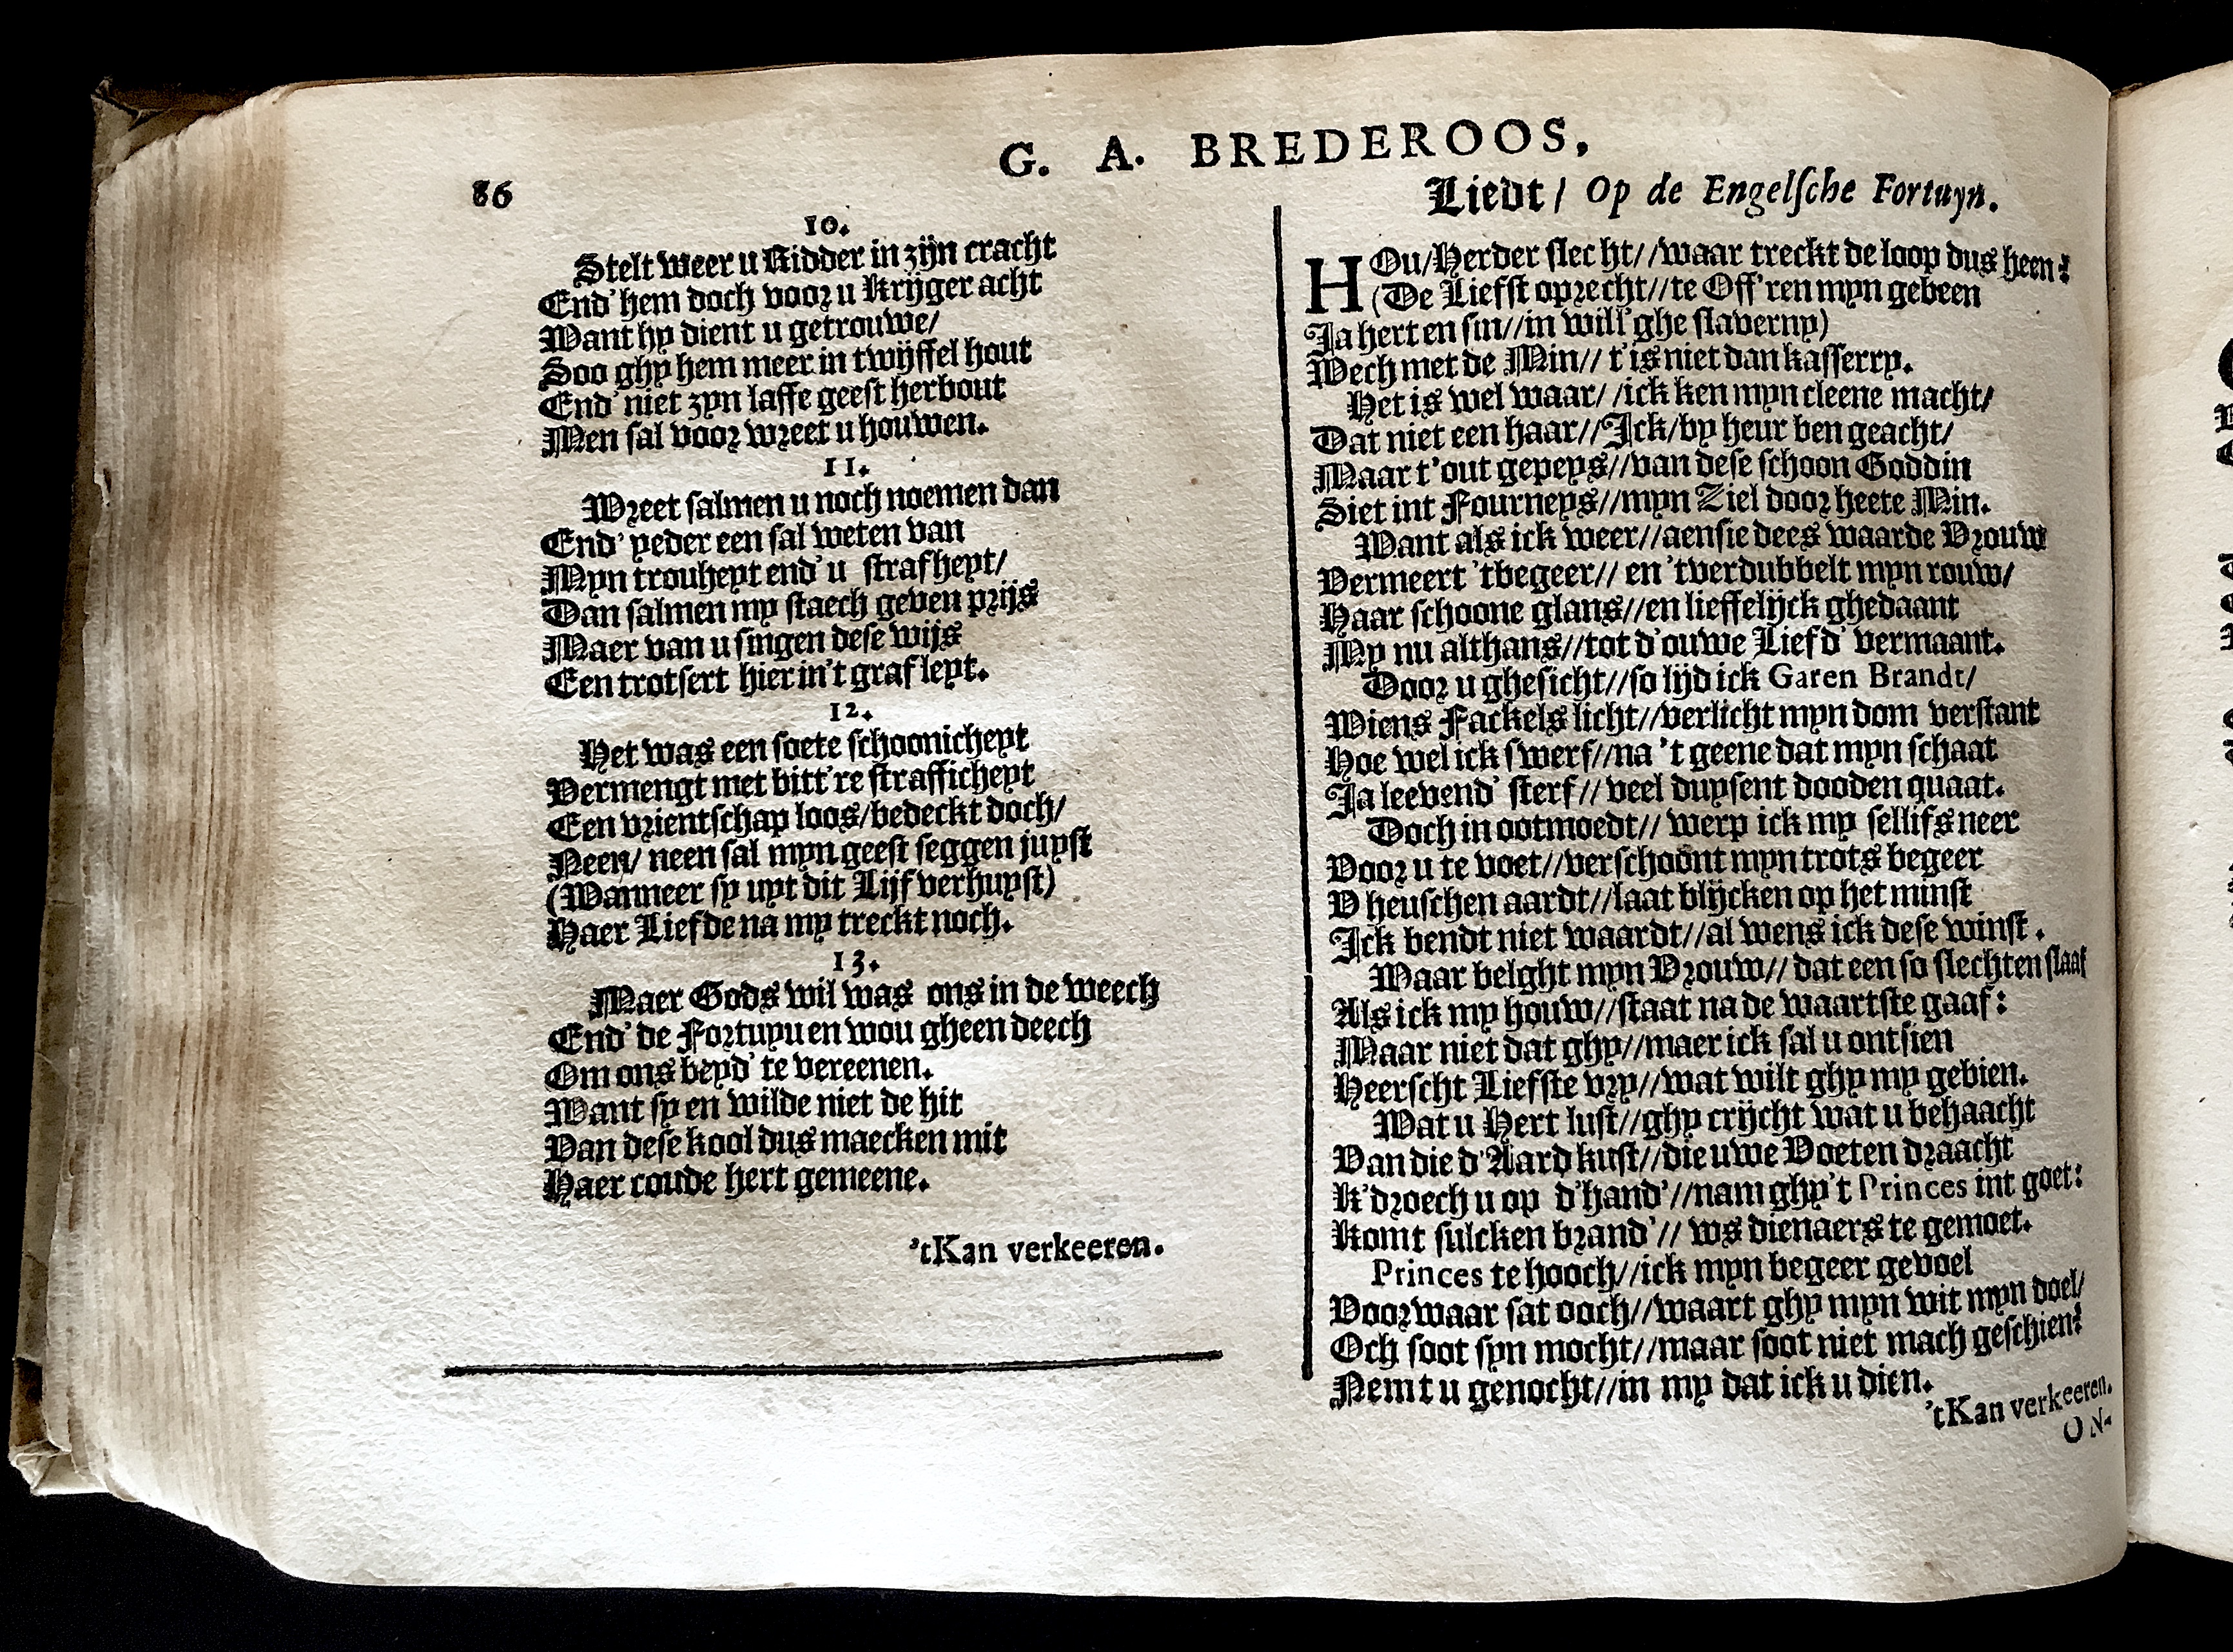 G. A. BREDEROOS,
86
10.
Stelt weer u Ridder in zijn cracht
End' hem doch voor u Krijger acht
Want hy dient u getrouwe/
Soo ghy hem meer in twijffel hout
End' niet zyn laffe geest herbout
Men sal voor wreet u houwen.
11.
Wreet salmen u noch noemen dan
End' yeder een sal weten van
Myn trouheyt end' u strafheyt/
Dan salmen my staech geven prijs
Maer van u singen dese wijs
Een trotsert hier in't graf leyt.
12.
Het was een soete schoonicheyt
Vermengt met bitt're strafficheyt
Een vrientschap loos/bedeckt doch/
Neen/ neen sal myn geest seggen juyst
(Wanneer sy uyt dit Lijf verhuyst)
Haer Liefde na my treckt noch.
13.
Maer Gods wil was ons in de weech
End' de Fortuyu en wou gheen deech
Om ons beyd' te vereenen.
Want sy en wilde niet de hit
Van dese kool dus maecken mit
Haer coude hert gemeene.
'tKan verkeeren.
Liedt/ Op de Engelsche Fortuyn.
HOu/Herder slecht//waar treckt de loop dus heen?
(De Liefst oprecht//te Off'ren myn gebeen
Ja hert en sin//in will'ghe slaverny)
Wech met de Min// t'is niet dan kasserry.
Het is wel waar//ick ken myn cleene macht/
Dat niet een haar//Ick/by heur ben geacht/
Maar t'out gepeys//van dese schoon Goddin
Siet int Fourneys//myn Ziel door heete Min.
Want als ick weer//aensie dees waarde Vrouw
Vermeert 'tbegeer// en 'tverdubbelt myn rouw/
Haar schoone glans//en lieffelijck ghedaant
My nu althans//tot d'ouwe Liefd' vermaant.
Door u ghesicht//so lijd ick Garen Brandt/
Wiens Fackels licht//verlicht myn dom verstant
Hoe wel ick swerf//na 't geene dat myn schaat
Ja leevend' sterf// veel duysent dooden quaat.
Doch in ootmoedt// werp ick my sellifs neer
Voor u te voet//verschoont myn trots begeer
V heuschen aardt//laat blijcken op het minst
Ick bendt niet waardt//al wens ick dese winst.
Maar belght myn Vrouw// dat een so slechten slaaf
Als ick my houw//staat na de waartste gaaf:
Maar niet dat ghy//maer ick sal u ontsien
Heerscht Liefste vry//wat wilt ghy my gebien.
Wat u Hert lust//ghy crijcht wat u behaacht
Van die d'Aard kust//die uwe Voeten draacht
K'droech u op d'hand'//nam ghy't Princes int goet:
Komt sulcken brand'// ws dienaers te gemoet.
Princes te hooch//ick myn begeer gevoel
Voorwaar sat ooch//waart ghy myn wit myn doel/
Och soot syn mocht//maar soot niet mach geschien?
Nemt u genocht//in my dat ick u dien.
'tKan verkeeren.
ON-